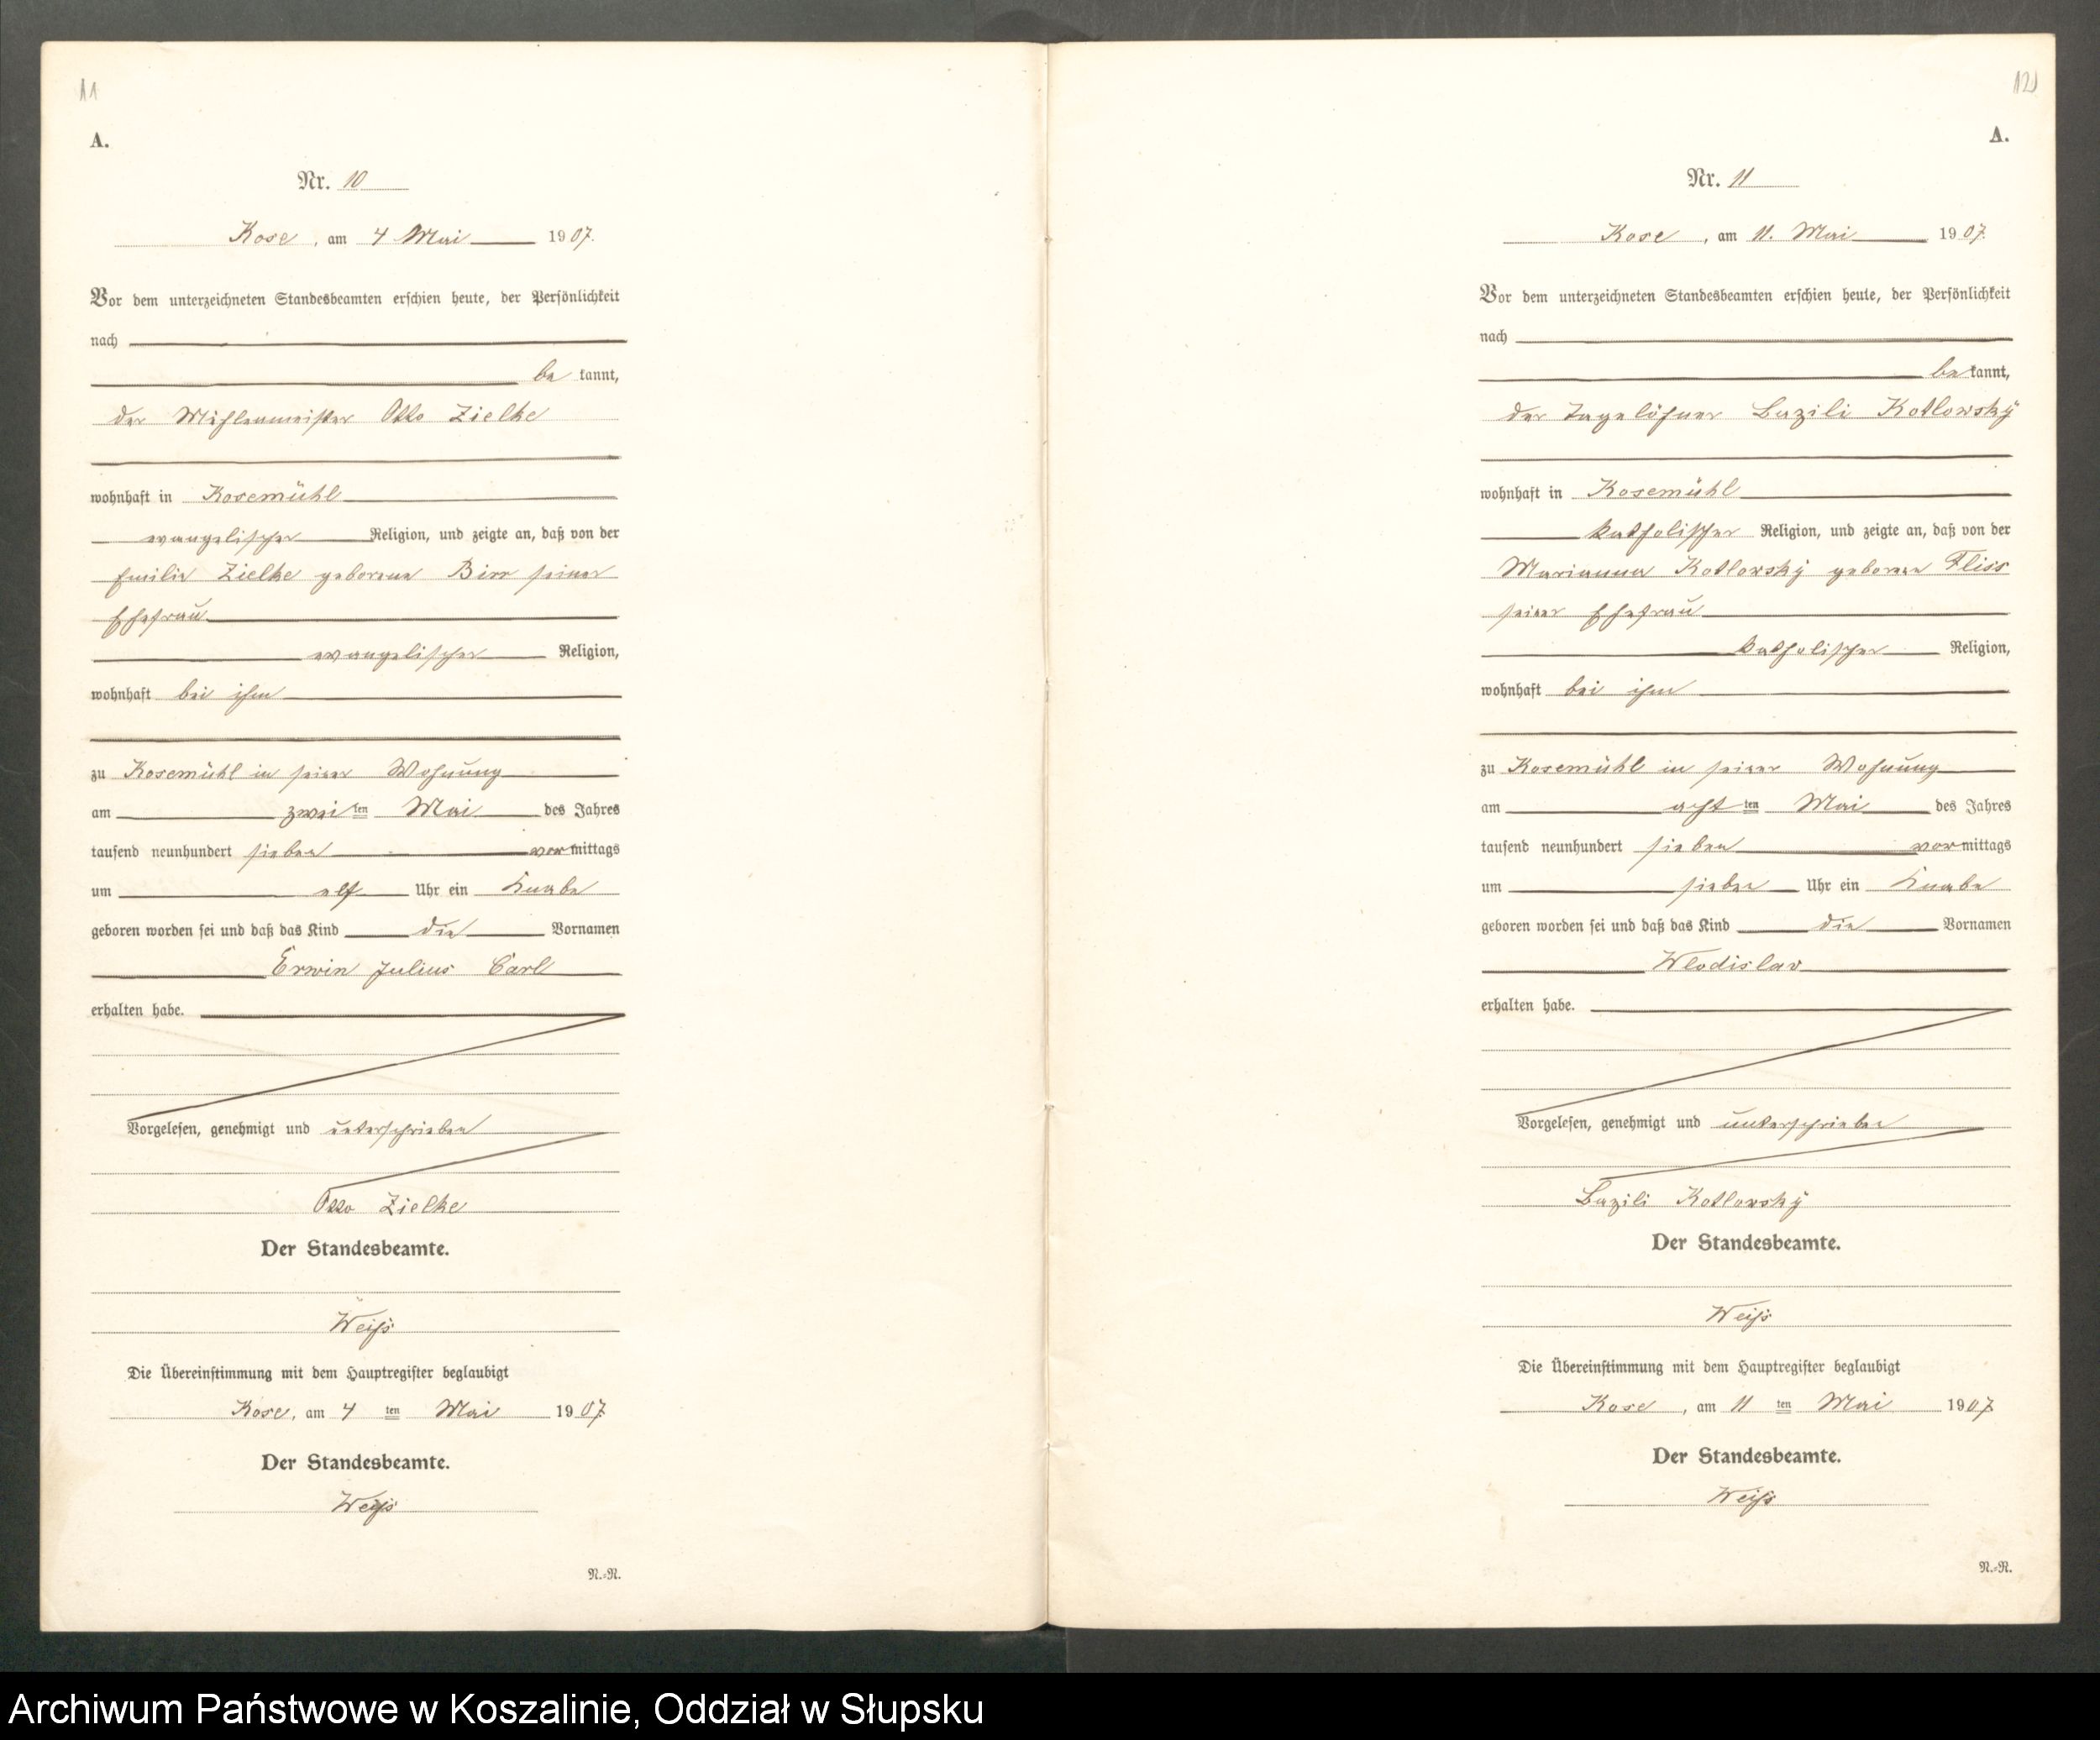 11
A.
Nr. 10
Kose, am 4 Mai 1907.
Vor dem unterzeichneten Standesbeamten erschien heute, der Persönlichkeit
nach
be kannt,
der Mühlenmeister Otto Zielke
wohnhaft in Kosemühl
evangelischer Religion, und zeigte an, daß von der
Emilie Zielke geborene Birr seiner
Ehefrau
evangelischer Religion,
wohnhaft bei ihm
zu Kosemühl in seiner Wohnung
am zwei ten Mai des Jahres
tausend neunhundert sieben vormittags
um elf Uhr ein Knabe
geboren worden sei und daß das Kind die Vornamen
Erwin Julius Carl
erhalten habe.
Vorgelesen, genehmigt und unterschrieben
Otto Zielke
Der Standesbeamte.
Weiß
Die Übereinstimmung mit dem Hauptregister beglaubigt
Kose, am 4 ten Mai 1907
Der Standesbeamte.
Weiß
N.=R.
12
A.
Nr. 11
Kose, am 11. Mai 1907.
Vor dem unterzeichneten Standesbeamten erschien heute, der Persönlichkeit
nach
be kannt,
der Tagelöhner Bazili Kotlowsky
wohnhaft in Kosemühl
katholischer Religion, und zeigte an, daß von der
Marianna Kotlowsky geborene Fliss
seiner Ehefrau
katholischer Religion,
wohnhaft bei ihm
zu Kosemühl in seiner Wohnung
am acht ten Mai des Jahres
tausend neunhundert sieben vormittags
um sieben Uhr ein Knabe
geboren worden sei und daß das Kind die Vornamen
Wlodislav
erhalten habe.
Vorgelesen, genehmigt und unterschrieben
Bazili Kotlowsky
Der Standesbeamte.
Weiß
Die Übereinstimmung mit dem Hauptregister beglaubigt
Kose, am 11 ten Mai 1907
Der Standesbeamte.
Weiß
N.=R.
Archiwum Państwowe w Koszalinie, Oddział w Słupsku